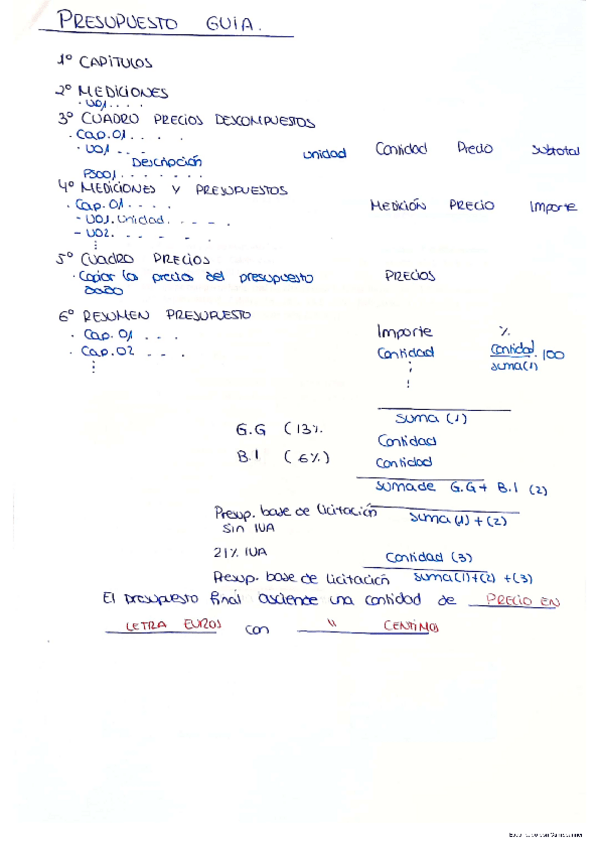 PRESUPUESTO GUIA.
1º CAPÍTULOS
2º MEDICIONES
· U01. . . .
3º CUADRO PRECIOS DESCOMPUESTOS
· Cap. 01 . . . .
· U01 . . . Unidad Cantidad Precio Subtotal
Descripción
PS001. . . . . . .
4º MEDICIONES Y PRESUPUESTOS
· Cap. 01 . . . . MEDICIÓN PRECIO IMPORTE
- U01. Unidad. . - - .
- U02. . . - . .
5º CUADRO PRECIOS
· Copiar los precios del presupuesto PRECIOS
6º RESUMEN PRESUPUESTO
· Cap. 01 . . . Importe %
· Cap. 02 . . . Cantidad cantidad/suma(1) · 100
suma (1)
G.G (13% Cantidad
B.I (6%) Cantidad
suma de G.G + B.I (2)
Presup. base de licitación suma (1) + (2)
sin IVA
21% IVA Cantidad (3)
Presup. base de licitación suma (1)+(2) +(3)
El presupuesto final asciende una cantidad de PRECIO EN
LETRA EUROS con " CENTIMOS